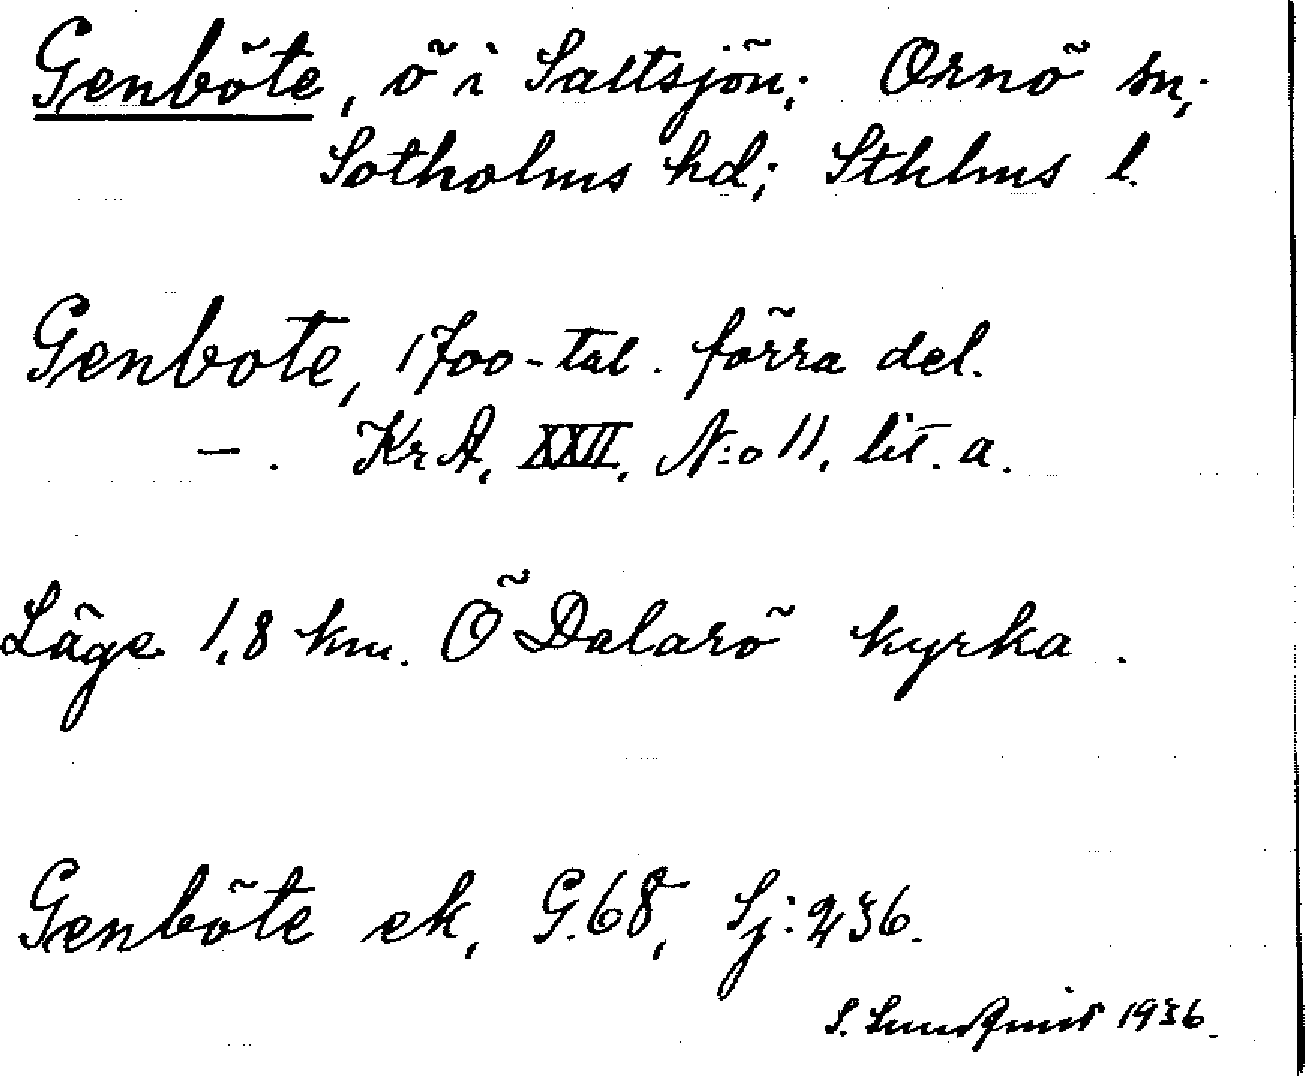 Genböte, ö i Saltsjön; Ornö sn;
Sotholms hd; Sthlms l.
Genbote, 1700-tal. förra del.
— . KrA, XXII, N:o 11, lit. a.
Läge 1,8 km. Ö Dalarö kyrka.
Genböte ek, G.68, Sj:236.
S. Sundqvist 1936.